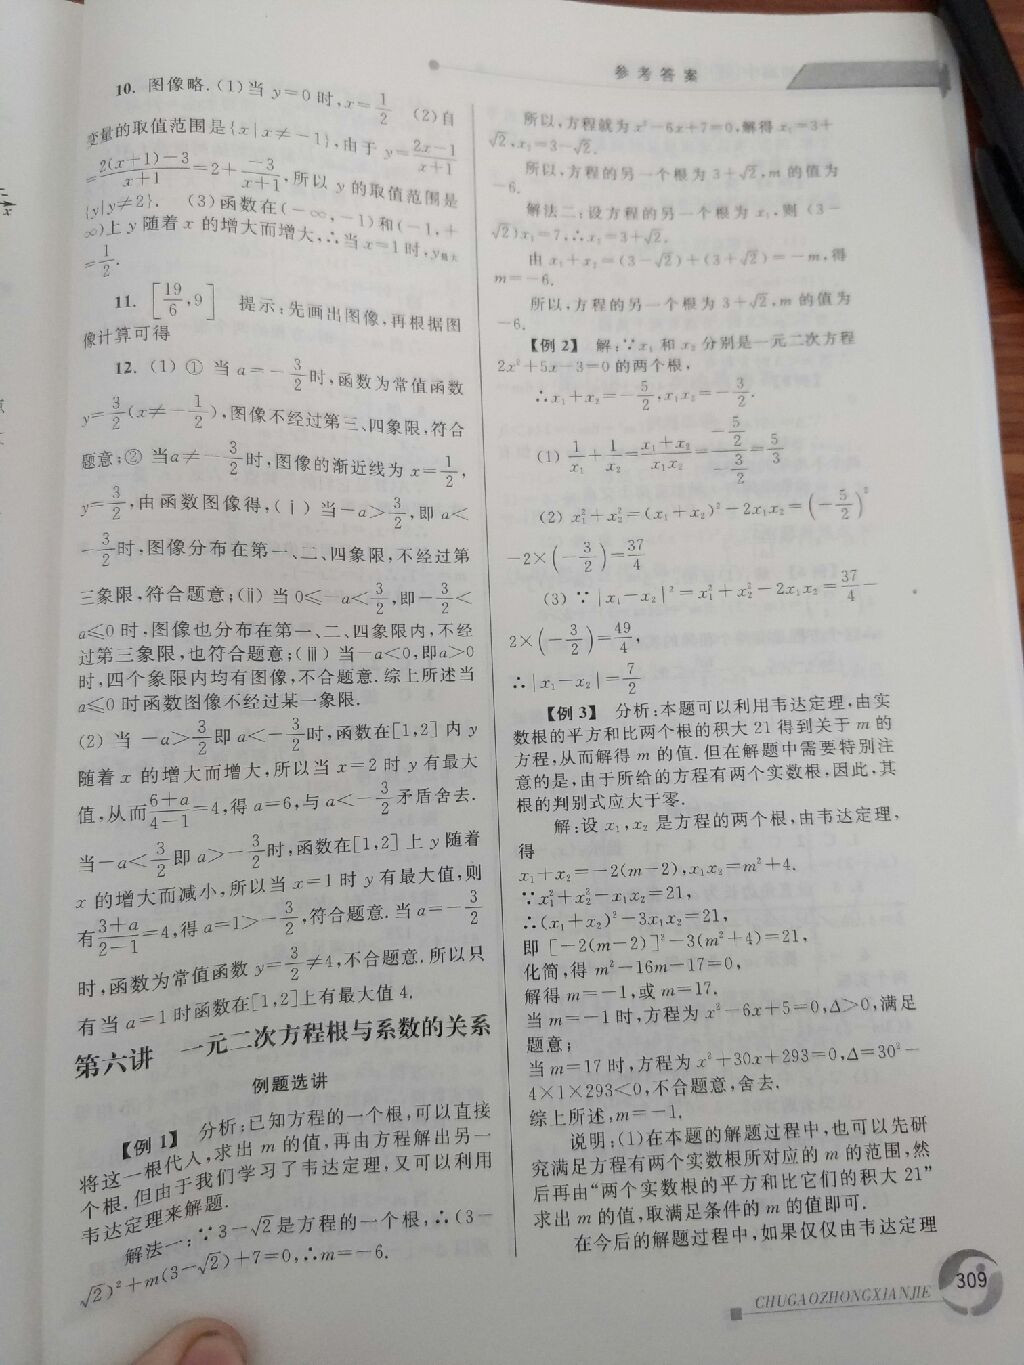 参考答案
10. 图像略.(1)当 y=0 时,x=1/2 (2)自
变量的取值范围是{x|x≠-1},由于 y=(2x-1)/(x+1)
=(2(x+1)-3)/(x+1)=2+(-3)/(x+1),所以 y 的取值范围是
{y|y≠2}. (3)函数在(-∞,-1)和(-1,+
∞)上 y 随着 x 的增大而增大,∴当 x=1 时,y最大
=1/2.
11. [19/6,9] 提示:先画出图像,再根据图
像计算可得
12. (1) ① 当 a=-3/2时,函数为常值函数
y=3/2(x≠-1/2),图像不经过第三、四象限,符合
题意;② 当a≠-3/2时,图像的渐近线为 x=1/2,
y=3/2,由函数图像得,(ⅰ) 当-a>3/2,即 a<
-3/2时,图像分布在第一、二、四象限,不经过第
三象限,符合题意;(ⅱ) 当 0≤-a<3/2,即-3/2<
a≤0 时,图像也分布在第一、二、四象限内,不经
过第三象限,也符合题意;(ⅲ) 当-a<0,即a>0
时,四个象限内均有图像,不合题意.综上所述当
a≤0 时函数图像不经过某一象限.
(2) 当 -a>3/2即 a<-3/2时,函数在[1,2] 内 y
随着 x 的增大而增大,所以当 x=2 时 y 有最大
值,从而(6+a)/(4-1)=4,得 a=6,与 a<-3/2矛盾舍去.
当-a<3/2即 a>-3/2时,函数在[1,2] 上 y 随着
x 的增大而减小,所以当 x=1 时 y 有最大值,则
有(3+a)/(2-1)=4,得 a=1>-3/2,符合题意.当 a=-3/2
时,函数为常值函数 y=3/2≠4,不合题意.所以只
有当 a=1 时函数在[1,2]上有最大值 4.
第六讲 一元二次方程根与系数的关系
例题选讲
【例 1】 分析:已知方程的一个根,可以直接
将这一根代人,求出 m 的值,再由方程解出另一
个根.但由于我们学习了韦达定理,又可以利用
韦达定理来解题.
解法一:∵3-√2是方程的一个根,∴(3-
√2)²+m(3-√2)+7=0,∴m=-6.
所以,方程就为 x²-6x+7=0,解得 x₁=3+
√2,x₂=3-√2.
所以,方程的另一个根为 3+√2,m 的值为
-6.
解法二:设方程的另一个根为 x₁,则 (3-
√2)x₁=7,∴x₁=3+√2.
由 x₁+x₂=(3-√2)+(3+√2)=-m,得
m=-6.
所以,方程的另一个根为 3+√2,m 的值为
-6.
【例 2】 解:∵x₁ 和 x₂ 分别是一元二次方程
2x²+5x-3=0 的两个根,
∴x₁+x₂=-5/2,x₁x₂=-3/2.
(1) 1/x₁+1/x₂=(x₁+x₂)/(x₁x₂)=(-5/2)/(-3/2)=5/3
(2) x₁²+x₂²=(x₁+x₂)²-2x₁x₂=(-5/2)²
-2×(-3/2)=37/4
(3) ∵|x₁-x₂|²=x₁²+x₂²-2x₁x₂=37/4-
2×(-3/2)=49/4,
∴|x₁-x₂|=7/2
【例 3】 分析:本题可以利用韦达定理,由实
数根的平方和比两个根的积大 21 得到关于 m 的
方程,从而解得 m 的值.但在解题中需要特别注
意的是,由于所给的方程有两个实数根,因此,其
根的判别式应大于零.
解:设 x₁,x₂ 是方程的两个根,由韦达定理,
得
x₁+x₂=-2(m-2),x₁x₂=m²+4.
∵x₁²+x₂²-x₁x₂=21,
∴(x₁+x₂)²-3x₁x₂=21,
即 [-2(m-2)]²-3(m²+4)=21,
化简,得 m²-16m-17=0,
解得 m=-1,或 m=17.
当 m=-1 时,方程为 x²-6x+5=0,Δ>0,满足
题意;
当 m=17 时,方程为 x²+30x+293=0,Δ=30²-
4×1×293<0,不合题意,舍去.
综上所述,m=-1.
说明:(1)在本题的解题过程中,也可以先研
究满足方程有两个实数根所对应的 m 的范围,然
后再由“两个实数根的平方和比它们的积大 21”
求出 m 的值,取满足条件的 m 的值即可.
在今后的解题过程中,如果仅仅由韦达定理
CHUGAOZHONGXIANJIE
309